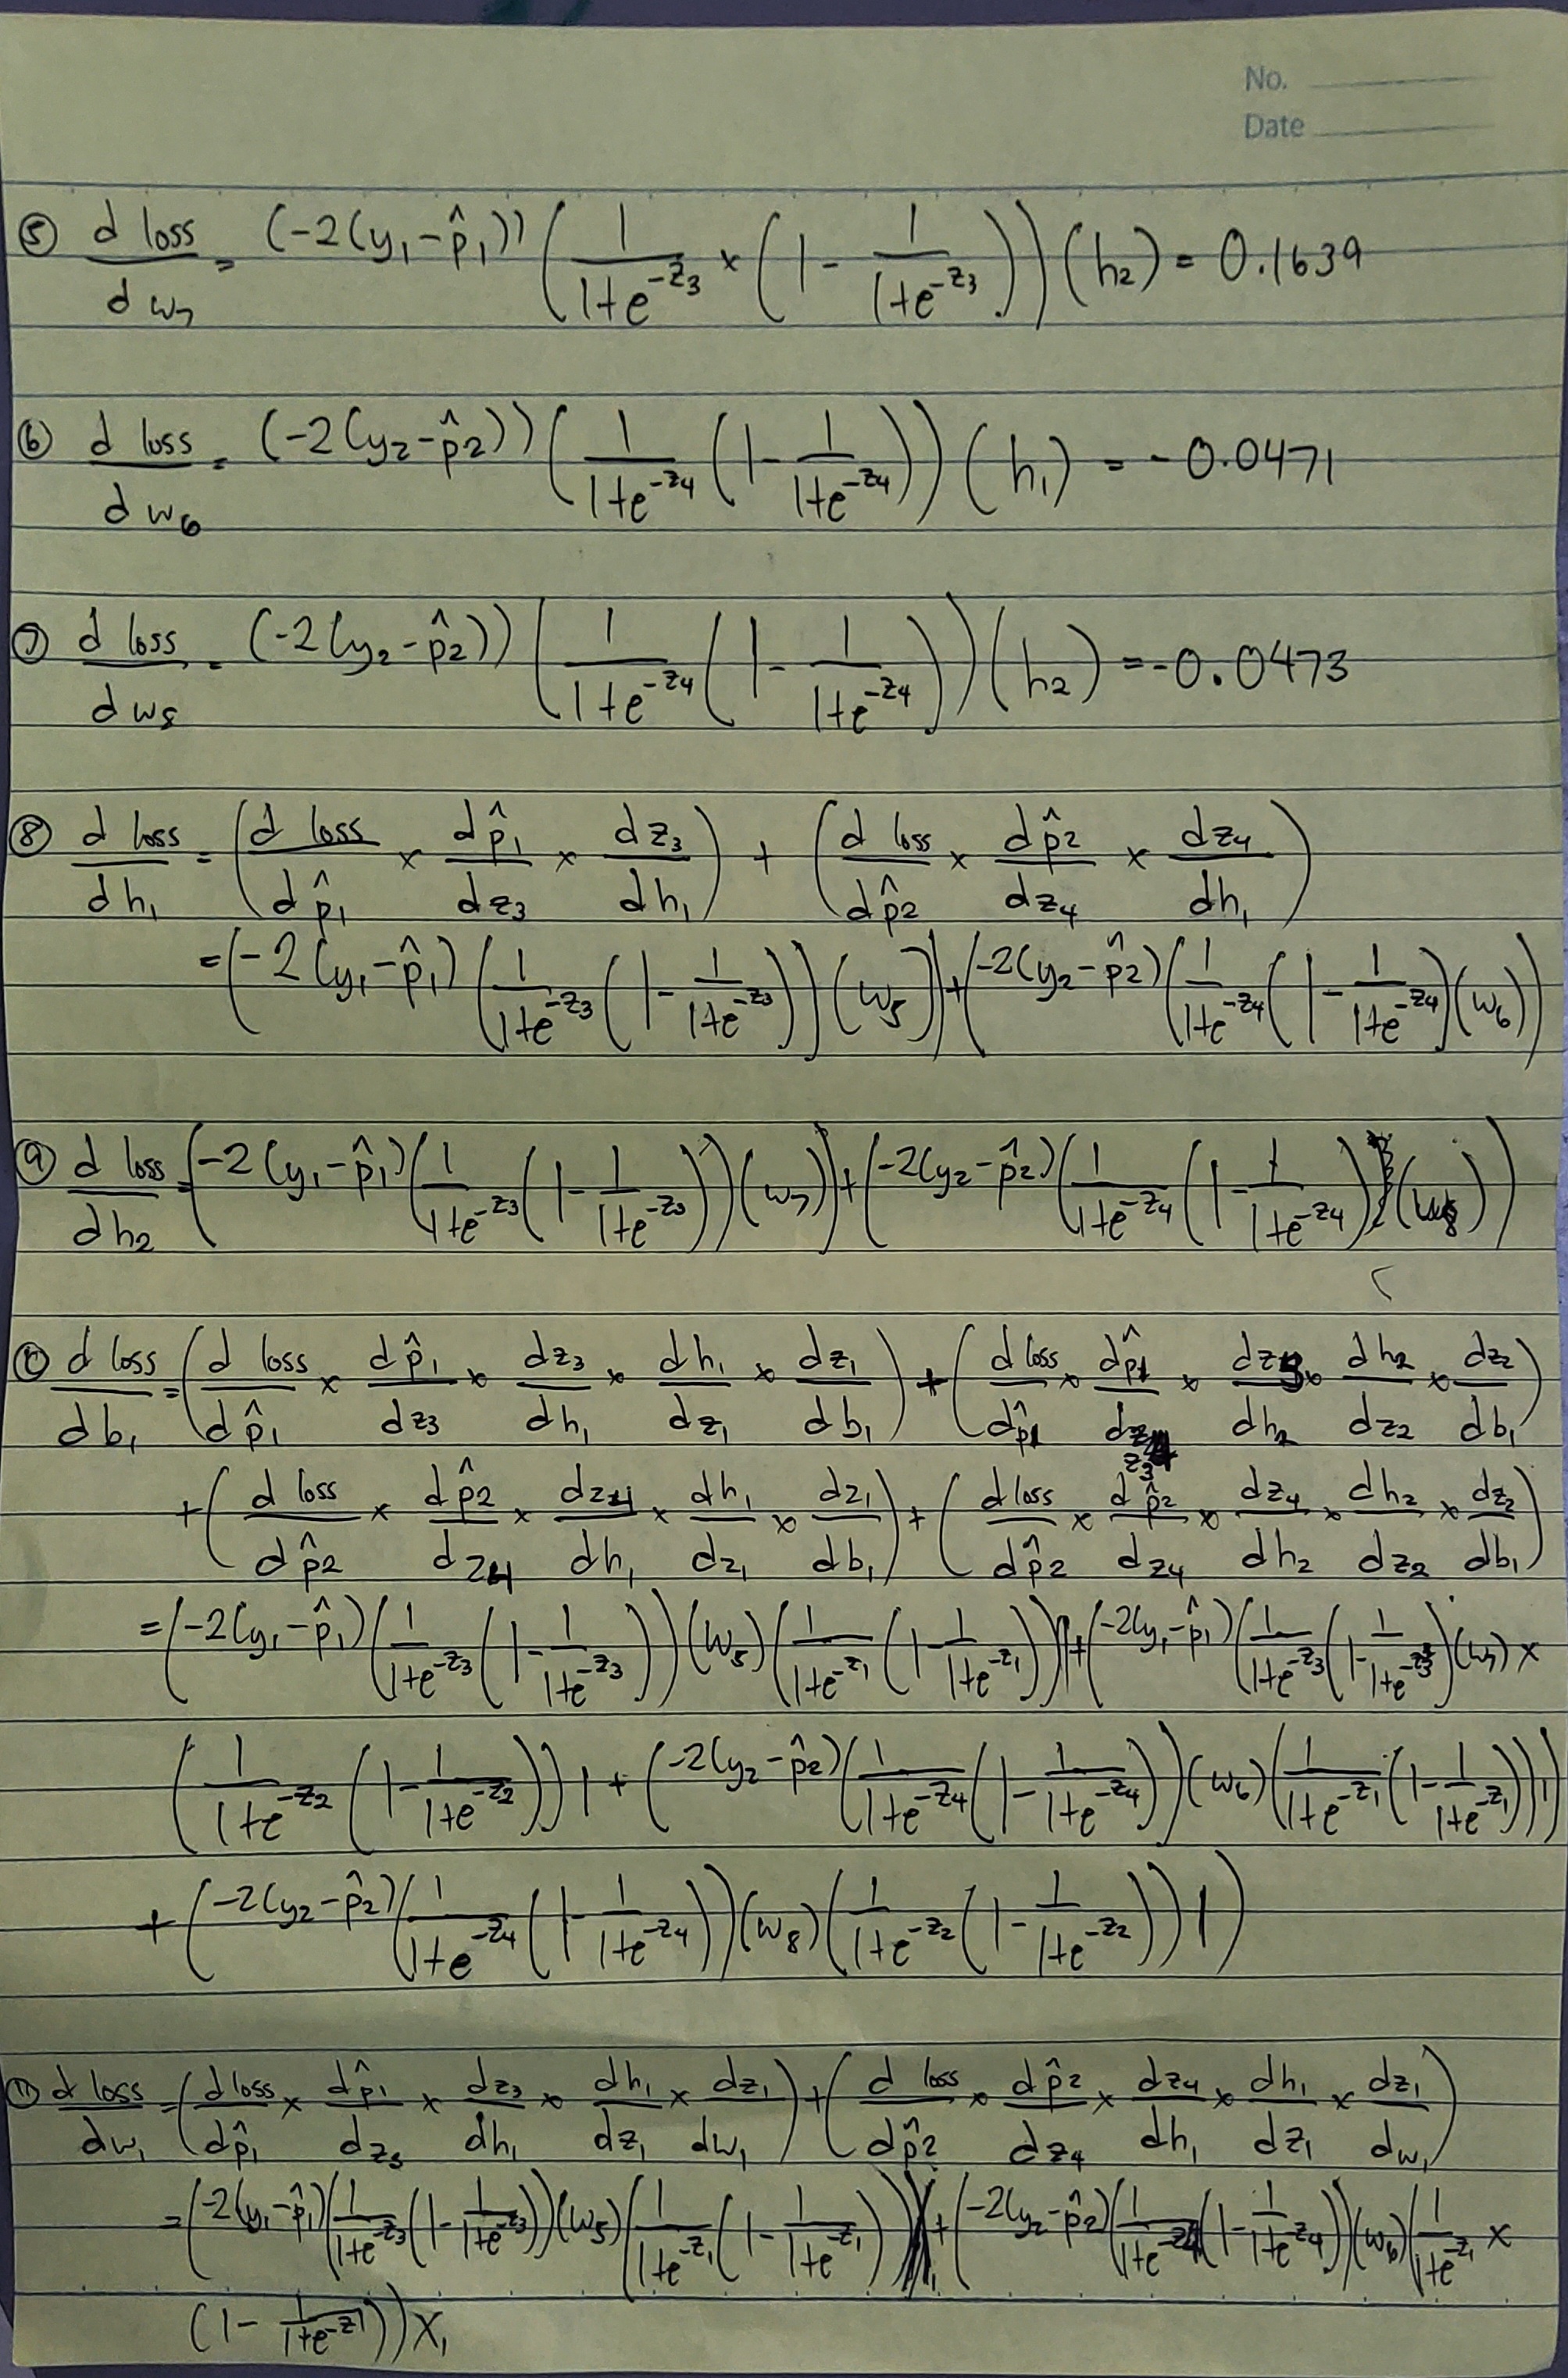 No.
Date
⑤ d loss / dw₇ = (-2(y₁-p̂₁)) (1/(1+e^(-z₃)) × (1 - 1/(1+e^(-z₃)))) (h₂) = 0.1639
⑥ d loss / dw₆ = (-2(y₂-p̂2)) (1/(1+e^(-z₄)) (1 - 1/(1+e^(-z₄)))) (h₁) = -0.0471
⑦ d loss / dw₈ = (-2(y₂-p̂2)) (1/(1+e^(-z₄)) (1 - 1/(1+e^(-z₄)))) (h₂) = -0.0473
⑧ d loss / dh₁ = (d loss/dp̂₁ × dp̂₁/dz₃ × dz₃/dh₁) + (d loss/dp̂2 × dp̂2/dz₄ × dz₄/dh₁)
= (-2(y₁-p̂₁) (1/(1+e^(-z₃)) (1 - 1/(1+e^(-z₃)))) (w₅)) + (-2(y₂-p̂2) (1/(1+e^(-z₄)) (1 - 1/(1+e^(-z₄)) (w₆))
⑨ d loss / dh₂ = (-2(y₁-p̂₁) (1/(1+e^(-z₃)) (1 - 1/(1+e^(-z₃)))) (w₇)) + (-2(y₂-p̂2) (1/(1+e^(-z₄)) (1 - 1/(1+e^(-z₄))) (w₈))
⑩ d loss / db₁ = (d loss/dp̂₁ × dp̂₁/dz₃ × dz₃/dh₁ × dh₁/dz₁ × dz₁/db₁) + (d loss/dp̂1 × dp̂1/dz₃ × dz3/dh₂ × dh₂/dz₂ × dz₂/db₁)
+ (d loss/dp̂2 × dp̂2/dz4 × dz4/dh₁ × dh₁/dz₁ × dz₁/db₁) + (d loss/dp̂2 × dp̂2/dz₄ × dz₄/dh₂ × dh₂/dz₂ × dz₂/db₁)
= (-2(y₁-p̂₁) (1/(1+e^(-z₃)) (1 - 1/(1+e^(-z₃)))) (w₅) (1/(1+e^(-z₁)) (1 - 1/(1+e^(-z₁)))) 1) + (-2(y₁-p̂₁) (1/(1+e^(-z₃)) (1 - 1/(1+e^(-z₃))) (w₇) ×
(1/(1+e^(-z₂)) (1 - 1/(1+e^(-z₂)))) 1 + (-2(y₂-p̂2) (1/(1+e^(-z₄)) (1 - 1/(1+e^(-z₄)))) (w₆) (1/(1+e^(-z₁)) (1 - 1/(1+e^(-z₁)))) 1)
+ (-2(y₂-p̂2) (1/(1+e^(-z₄)) (1 - 1/(1+e^(-z₄)))) (w₈) (1/(1+e^(-z₂)) (1 - 1/(1+e^(-z₂)))) 1)
⑪ d loss / dw₁ = (d loss/dp̂₁ × dp̂₁/dz₃ × dz₃/dh₁ × dh₁/dz₁ × dz₁/dw₁) + (d loss/dp̂2 × dp̂2/dz₄ × dz₄/dh₁ × dh₁/dz₁ × dz₁/dw₁)
= (-2(y₁-p̂₁) (1/(1+e^(-z₃)) (1 - 1/(1+e^(-z₃)))) (w₅) (1/(1+e^(-z₁)) (1 - 1/(1+e^(-z₁)))) + (-2(y₂-p̂2) (1/(1+e^(-z4)) (1 - 1/(1+e^(-z₄)))) (w₆) (1/(1+e^(-z₁)) ×
(1 - 1/(1+e^(-z1)))) x₁